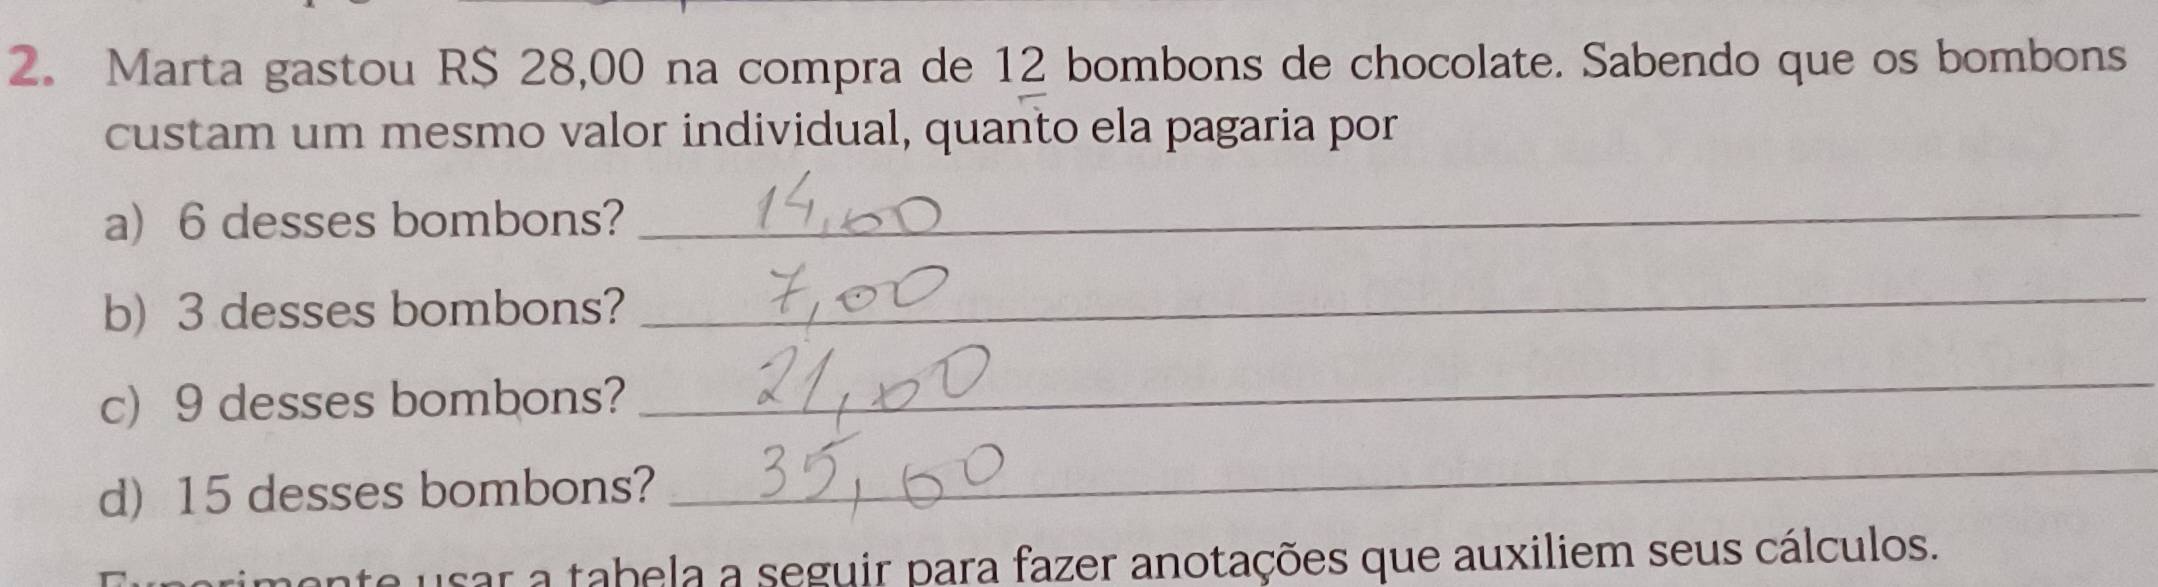 2. Marta gastou R$ 28,00 na compra de 12 bombons de chocolate. Sabendo que os bombons
custam um mesmo valor individual, quanto ela pagaria por
a) 6 desses bombons? 14,00
b) 3 desses bombons? 7,00
c) 9 desses bombons? 21,00
d) 15 desses bombons? 35,00
Experimente usar a tabela a seguir para fazer anotações que auxiliem seus cálculos.